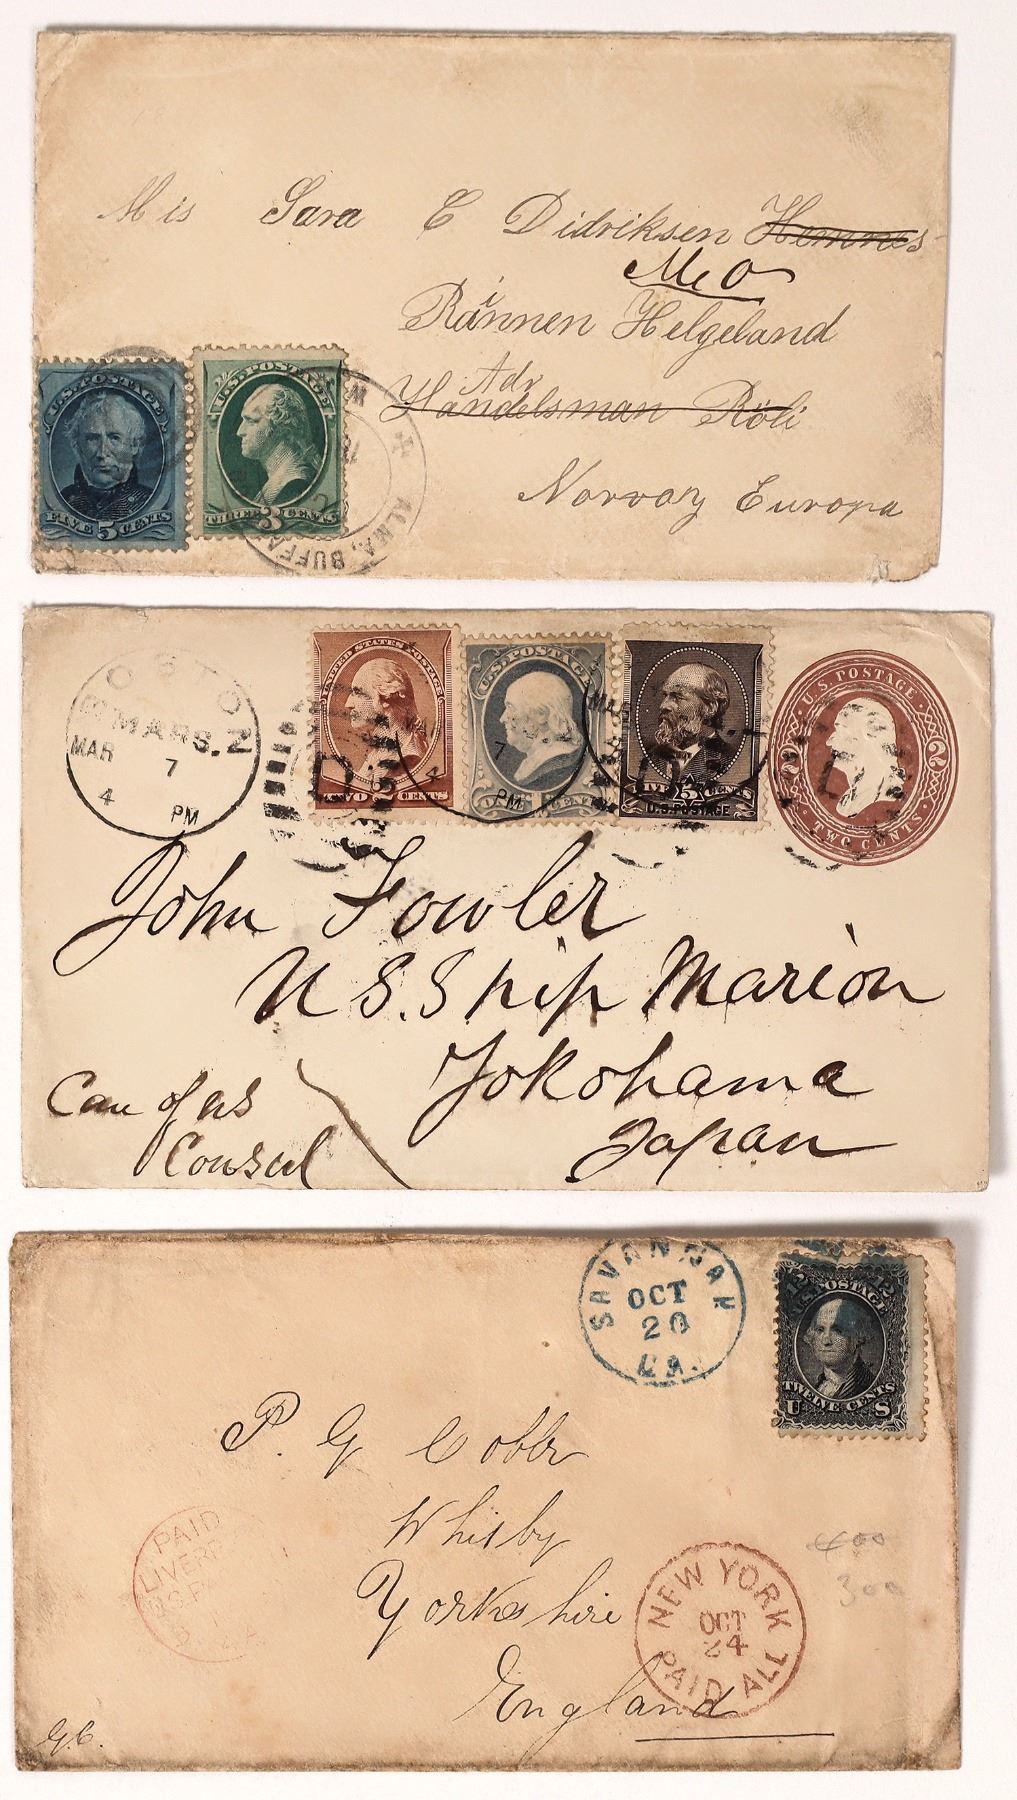 Mis Sara C Didriksen Hemnes
Me O
Rännen Helgeland
Adr
Handelsman Röli
Norway Europa
U.S. POSTAGE
FIVE 5 CENTS
U.S. POSTAGE
THREE 3 CENTS
ALMA, BUFFA
BOSTON
MASS.
MAR 7
4 PM
UNITED STATES POSTAGE
TWO CENTS
U.S. POSTAGE
MAR 7
4 PM
FIVE 5 CENTS
U.S. POSTAGE
U.S. POSTAGE
2 2
TWO CENTS
John Fowler
U S. Ship Marion
Yokohama
Japan
Care of US
Consul
SAVANNAH
OCT
20
GA.
12 12
U.S. POSTAGE
TWELVE CENTS
U S
P. G Cobbr
Whisby
Yorkshire
England
PAID
LIVERP
NEW YORK
OCT
24
PAID ALL
400
300
G.C.